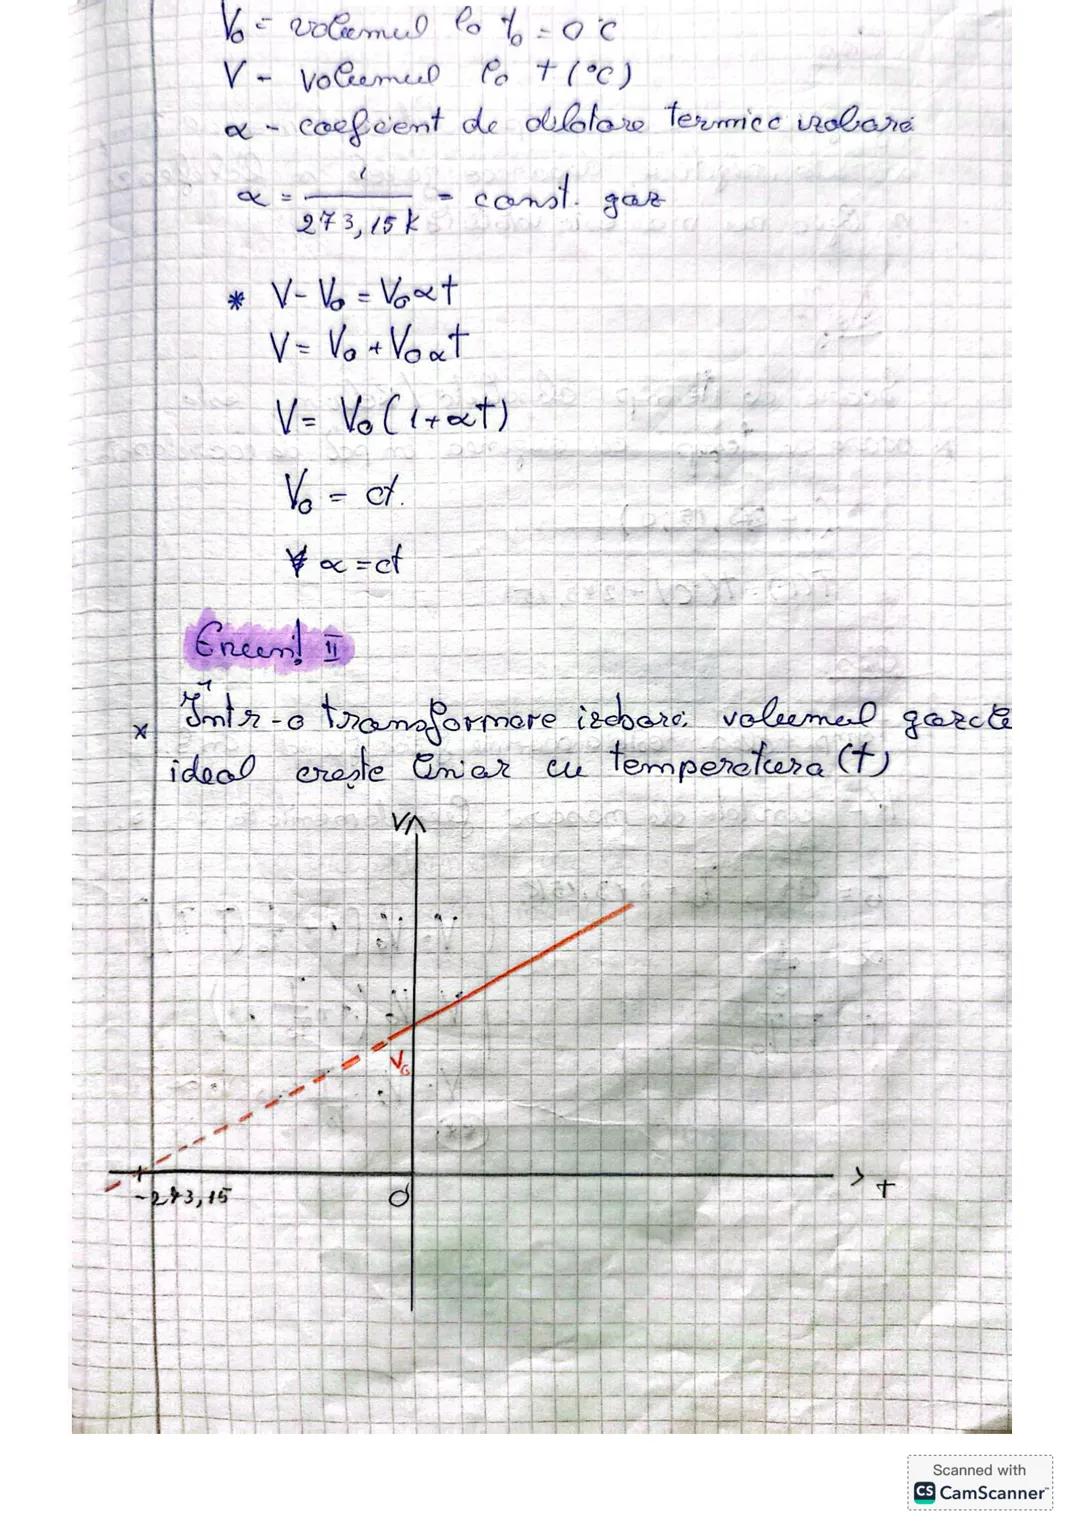 V₀ = volumul la t₀ = 0°C
V - volumul la t (°C)
α - coeficient de dilatare termică izobară
α = 1 / 273,15 K - const. gaz
* V - V₀ = V₀αt
V = V₀ + V₀αt
V = V₀ (1 + αt)
V₀ = ct.
α = ct
Enunț II
x Într-o transformare izobară volumul gazele
ideal crește liniar cu temperatura (t)
V
V₀
-273,15 O t
Scanned with
CS CamScanner